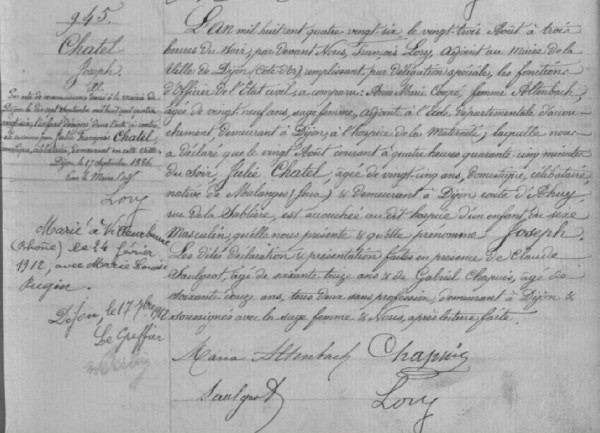 945.
Chatel
Joseph.
Dijon le 17 septembre 1886
Lory
Marié à Villeurbanne
(Rhône) le 24 février
1912, avec Marie Louise
Dijon, le 17
Le Greffier
L'an mil huit cent quatre-vingt-six, le vingt trois Août à trois
heures du soir, par devant Nous, François Lory, adjoint au Maire de la
Ville de Dijon (Côte-d'Or), remplissant, par délégation spéciale, les fonctions
d'Officier de l'Etat civil, a comparu: Anne Marie Coopé, femme Altenbach,
agée de vingt neuf ans, sage femme, adjointe à l'Ecole départementale d'accou-
chement demeurant à Dijon, à l'hospice de la Maternité; laquelle nous
a déclaré que le vingt Août courant à quatre heures quarante-cinq minutes
du soir, Julie Chatel, agée de vingt cinq ans, domestique, célibataire
native de (Jura) & demeurant à Dijon route d'Ahuy,
rue de la Sablière, est accouchée au dit hospice d'un enfant du sexe
Masculin, qu'elle nous présente & qu'elle prénomme Joseph.
Les dites déclaration & présentation faites en présence de Claude
Saulgeot, âgé de soixante treize ans & de Gabriel Chapuis, âgé de
soixante douze ans, tous deux sans profession, demeurant à Dijon &
soussignés avec la sage femme & Nous, après lecture faite.
Maria Altenbach Chapuis
Saulgeot Lory